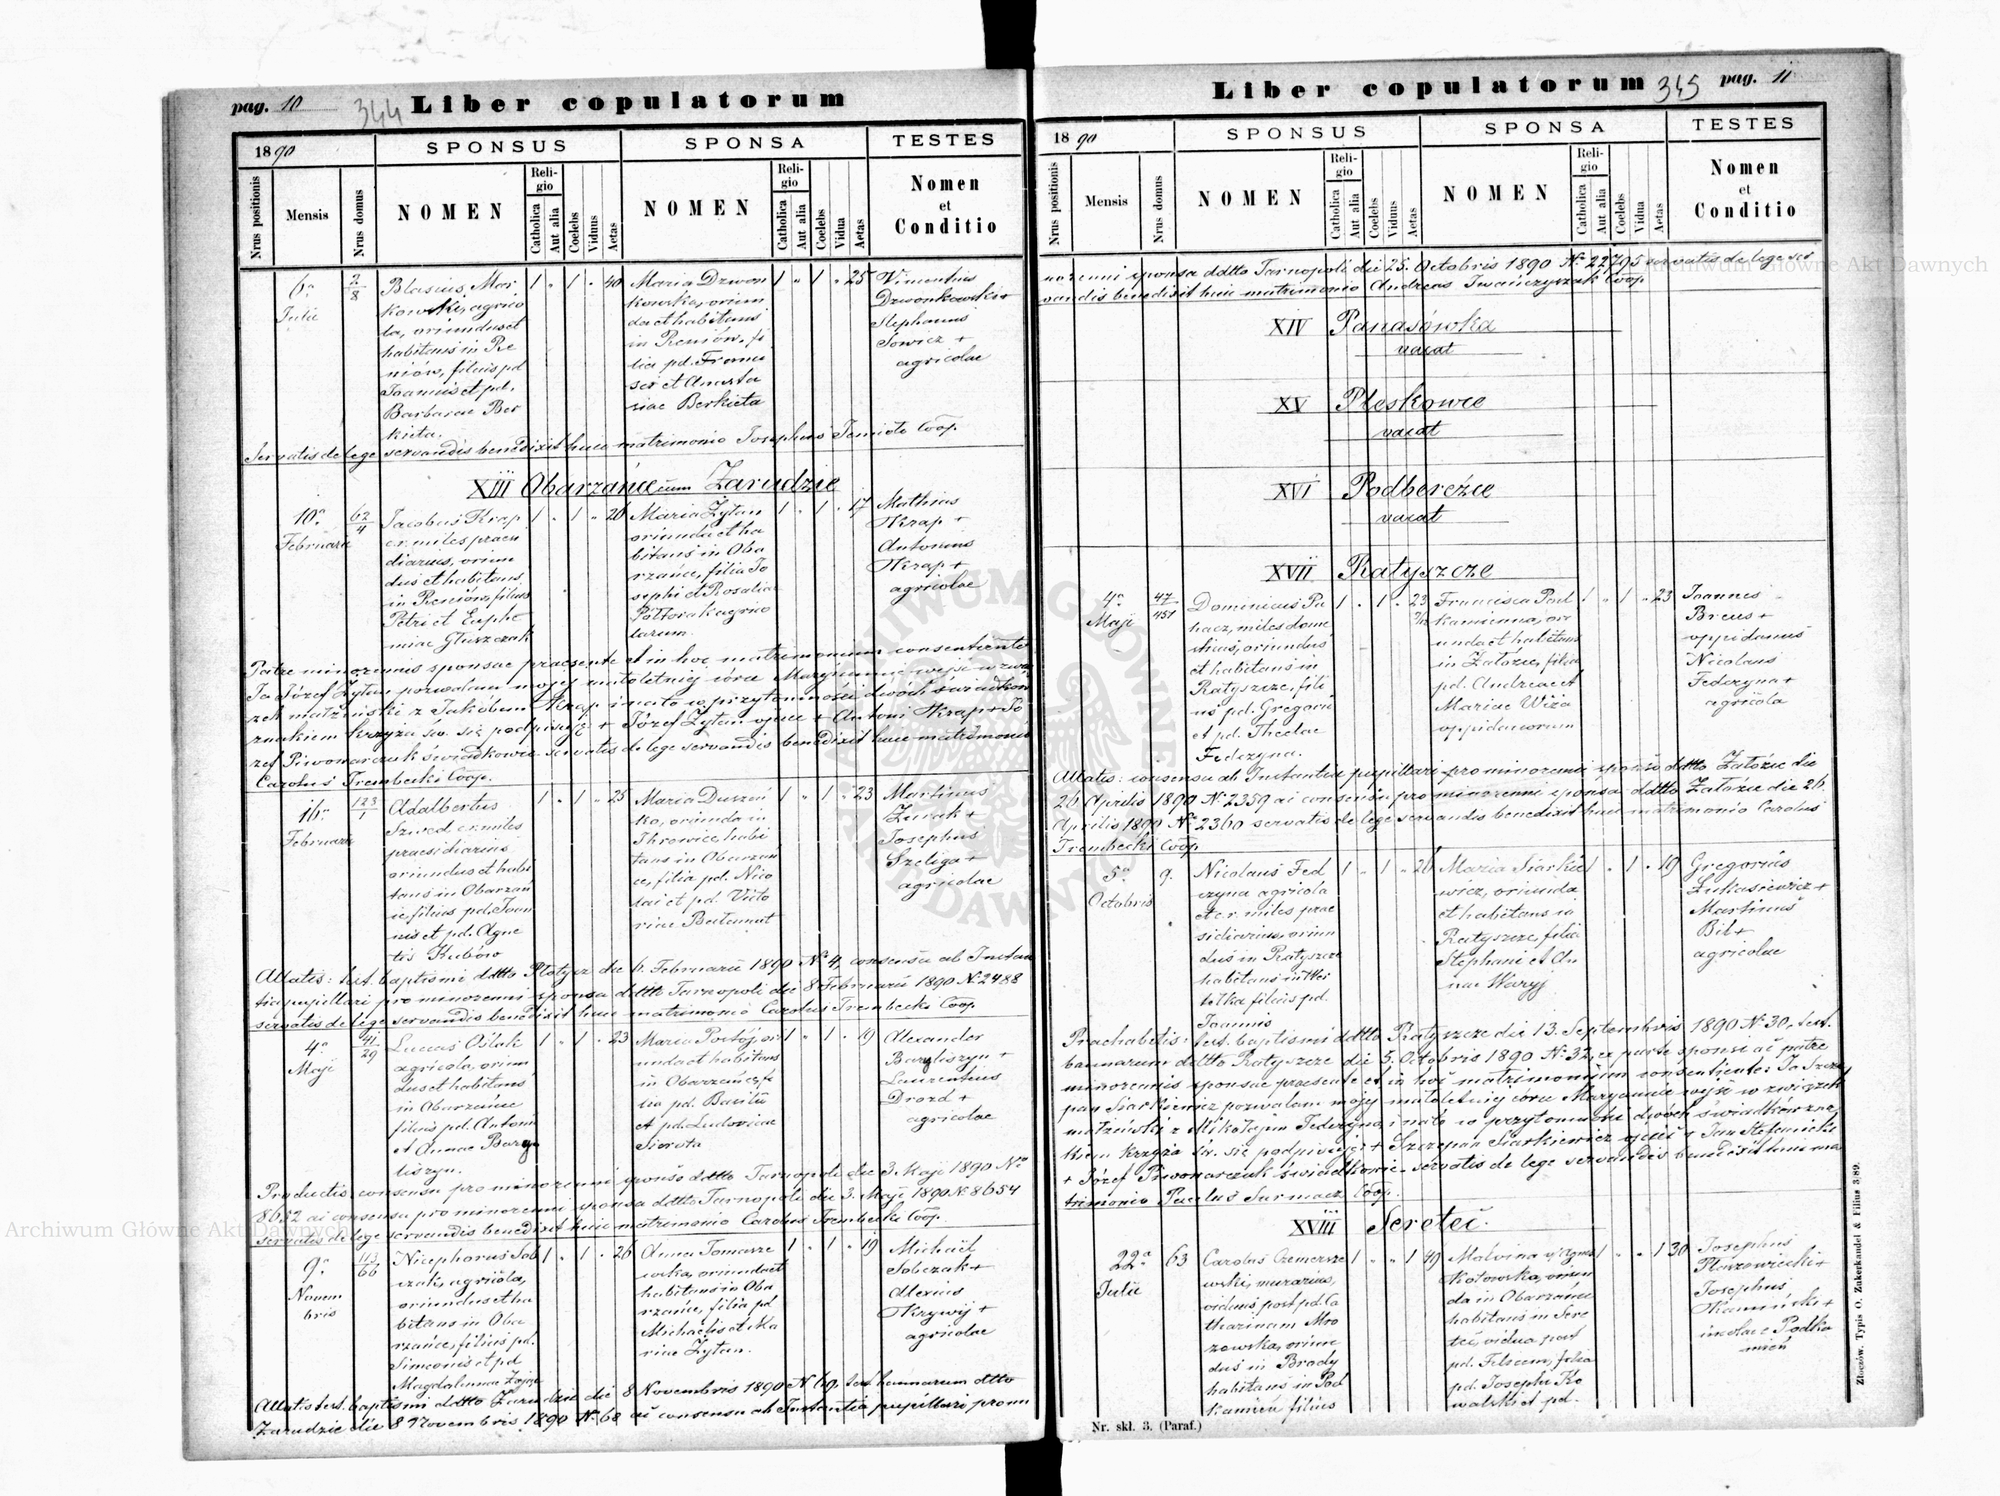 pag. 10
344
Liber copulatorum
1890
SPONSUS
SPONSA
TESTES
Nrus positionis
Mensis
Nrus domus
NOMEN
Religio
Catholica
Aut alia
Coelebs
Viduus
Aetas
NOMEN
Religio
Catholica
Aut alia
Coelebs
Vidua
Aetas
Nomen
et
Conditio
6a
Julii
2/8
Blasius Mar
kowski, agrico
la, oriundus et
habitans in Re
niow, filius pd
Joannis et pd.
Barbarae Ber
kieta.
1 " 1 " 40
Maria Dzwon
kowska, oriun
da et habitans
in Reniów, fi
lia pd. Franci
sci et Anasta
siae Berkieta
1 " 1 " 25
Vincentius
Dzwonkowski +
Stephanus
Sowicz +
agricolae
Servatis de lege servandis benedixit huic matrimonio Josephus Coop.
XIII Obarzańce cum Zarudzie
10a
Februarii
62/4
Jacobus Krap
c.r. miles praesi
diarius, oriun
dus et habitans
in Reniów, filius
Petri et Euphe
miae Głuszczak
1 " 1 " 26
Maria Żytan
oriunda et ha
bitans in Oba
rzańce, filia Jo
sephi et Rosaliae
Półtorak agrico
larum.
1 " 1 " 17
Mathias
Krap +
Antonius
Krap +
agricolae
Patre minorennis sponsae praesente et in hoc matrimonium consentiente
Ja Józef Żytan pozwalam mojej małoletniej córce Maryannie wejść w zwią
zek małżeński z Jakóbem Krap i na to w przytomności dwóch świadków
znakiem krzyża św. się podpisuję + Józef Żytan ojciec + Antoni Krap + Jó
zef Piwonarczuk świadkowie servatis de lege servandis benedixit huic matrimonio
Carolus Trembecki Coop.
16a
Februarii
123/1
Adalbertus
Szwed c.r. miles
praesidiarius
oriundus et habi
tans in Obarzań
ce filius pd. Joan
nis et pd. Agne
tis Kubów
1 " 1 " 25
Maria Duszeń
ko, oriunda in
Ihrowice habi
tans in Obarzań
ce, filia pd. Nico
lai et pd. Victo
riae Bałamut
1 " 1 " 23
Martinus
Żurak +
Josephus
Szeliga +
agricolae
Allatis: test. baptismi ddtto Płotycz die 6. Februarii 1890 N. 4, consensu ab Instan
tia pupillari pro minorenni sponsa ddtto Tarnopoli die 8 Februarii 1890 N. 2488
servatis de lege servandis benedixit huic matrimonio Carolus Trembecki Coop.
4a
Maji
41/29
Lucas Oślak
agricola, oriun
dus et habitans
in Obarzańce
filius pd. Antonii
et Annae Bary
liszyn.
1 " 1 " 23
Maria Postój ori
unda et habitans
in Obarzańce, fi
lia pd. Basilii
et pd. Ludovicae
Sierota
1 " 1 " 19
Alexander
Baryliszyn +
Laurentius
Drozd +
agricolae
Productis: consensu pro minorenni sponso ddtto Tarnopoli die 3. Maji 1890 No
8652 ac consensu pro minorenni sponsa ddtto Tarnopoli die 3. Maji 1890 N 8654
servatis de lege servandis benedixit huic matrimonio Carolus Trembecki Coop.
9a
Novem
bris
113/66
Nicephorus Sob
czak, agricola,
oriundus et ha
bitans in Oba
rzańce, filius pd.
Simeonis et pd
Magdalenae Zając
1 " 1 " 26
Anna Tomasze
wska, oriunda et
habitans in Oba
rzańce, filia pd
Michaelis et Ma
riae Żytan.
1 " 1 " 19
Michael
Sobczak +
Alexius
Krywij +
agricolae
Allatis test. baptismi ddtto Zarudzie die 8 Novembris 1890 N. 69, test. bannorum ddtto
Zarudzie die 8 Novembris 1890 N. 68 ac consensu ab Instantia pupillari pro mi
Liber copulatorum
345
pag. 11
1890
SPONSUS
SPONSA
TESTES
Nrus positionis
Mensis
Nrus domus
NOMEN
Religio
Catholica
Aut alia
Coelebs
Viduus
Aetas
NOMEN
Religio
Catholica
Aut alia
Coelebs
Vidua
Aetas
Nomen
et
Conditio
norenni sponsa ddtto Tarnopoli die 25. Octobris 1890 N. 22795 servatis de lege ser
vandis benedixit huic matrimonio Andreas Iwańczyszak Coop
XIV Panasówka
vacat
XV Pleskowce
vacat
XVI Podbereźce
vacat
XVII Ratyszcze
4a
Maji
47/451
Dominicus Pu
hacz, miles dome
sticus, oriundus
et habitans in
Ratyszcze, fili
us pd. Gregorii
et pd. Theclae
Fedczyna.
1 " 1 " 23
Francisca Pod
kamienna, ori
unda et habitans
in Załoźce, filia
pd. Andreae et
Mariae Wiża
oppidanorum
1 " 1 " 23
Joannes
Breus +
oppidanus
Nicolaus
Fedczyna +
agricola
Allatis: consensu ab Instantia pupillari pro minorenni sponso ddtto Załoźce die
26. Aprilis 1890 N. 2359 ac consensu pro minorenni sponsa ddtto Załoźce die 26.
Aprilis 1890 No. 2360 servatis de lege servandis benedixit huic matrimonio Carolus
Trembecki Coop
5a
Octobris
9.
Nicolaus Fed
czyna agricola
et c.r. miles prae
sidiarius, oriun
dus in Ratyszcze
habitans in Wer
tełka filius pd.
Joannis
1 " 1 " 26
Maria Siarkie
wicz, oriunda
et habitans in
Ratyszcze, filia
Stephani et An
nae Waryj
1 " 1 " 19
Gregorius
Łukasiewicz +
Martinus
Bił +
agricolae
Praehabitis: test. baptismi ddtto Ratyszcze die 13. Septembris 1890 N. 30, test.
bannorum ddtto Ratyszcze die 5. Octobris 1890 N. 32, ex parte sponsi ac patre
minorennis sponsae praesente et in hoc matrimonium consentiente: Ja Szcze
pan Siarkiewicz pozwalam mojej małoletniej córce Maryannie wejść w związek
małżeński z Mikołajem Fedczyna, i na to w przytomności dwóch świadków zna
kiem krzyża św. się podpisuję + Szczepan Siarkiewicz ojciec + Jan Stefanicki
+ Józef Piwonarczuk świadkowie servatis de lege servandis benedixit huic ma
trimonio Paulus Surmacz Coop.
XVIII Seretec.
22a
Julii
63
Carolus Czemerze
wski, murarius,
viduus post pd. Ca
tharinam Mro
zowska, oriun
dus in Brody
habitans in Pod
kamień filius
1 " " 1 49
Malvina v. Agnes
Kotowska, oriun
da in Obarzańce
habitans in Sere
tec, vidua post
pd. , filia
pd. Josephi Ko
walski et pd.
1 " " 1 30
Josephus
+
Josephus
Kamiński +
incolae Podka
mień
Nr. skł. 3. (Paraf.)
Złoczów. Typis O. Zukerkandel & Filius 3/89.
Archiwum Główne Akt Dawnych
Archiwum Główne Akt Dawnych
ARCHIWUM GŁÓWNE AKT DAWNYCH